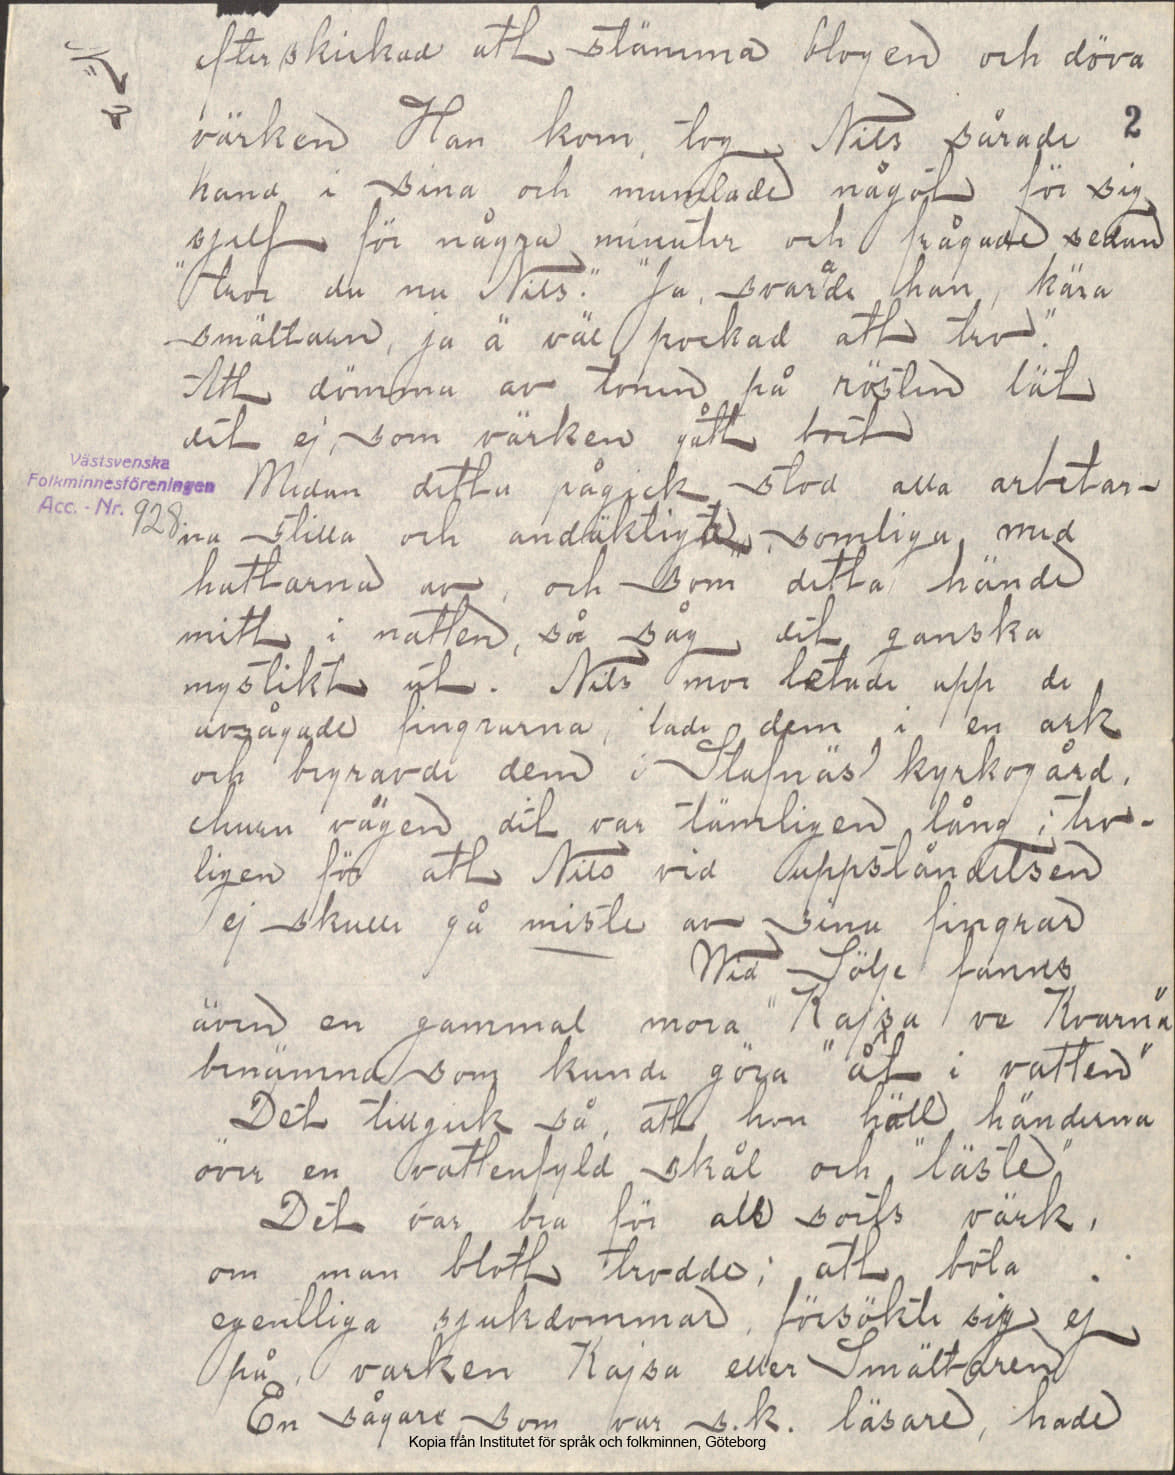 efterskickad att stämma blogen och döva
2
värken Han kom, tog Nils sårade
hand i sina och mumlade något för sig
sjelf för några minuter och frågade sedan
"tror du nu Nils." "Ja, svarade han, kära
smältarn, ja ä väl pockad att tro".
Att dömma av tonen på rösten lät
det ej, som värken gått bort
Västsvenska
Folkminnesföreningen
Acc. - Nr. 928.
Medan detta pågick stod alla arbetar-
na stilla och andäktigt, somliga med
hattarna av, och som detta hände
mitt i natten, så såg det ganska
mystikt ut. Nils mor letade upp de
avsågade fingrarna, lade dem i en ask
och begravde dem i Stafnäs kyrkogård,
ehuru vägen dit var tämligen lång; tro-
ligen för att Nils vid uppståndelsen
ej skulle gå miste av sina fingrar
Wid Sölje fanns
även en gammal mora "Kajsa ve Kvarna"
benämnd som kunde göra "åt i vatten"
Det tillgick så, att hon höll händerna
över en vattenfyld skål och "läste"
Det var bra för alls sorts värk,
om man blott trodde; att bota
egentliga sjukdommar, försökte sig ej
på, varken Kajsa eller Smältaren
En sågare som var s.k. läsare, hade
Kopia från Institutet för språk och folkminnen, Göteborg